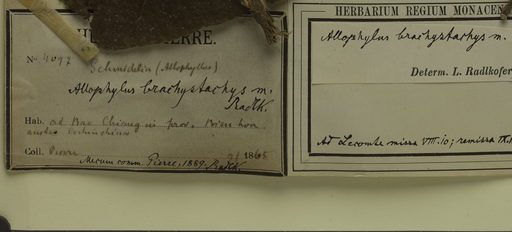 HERBIER PIERRE.
No 4097
Schmidelia (Allophyllus)
Allophylus brachystachys m.
Radlk.
Hab. ad prov. Bien hoa
Coll. Pierre 1865
Mecum comm. Pierre, 1889. Radlk.
HERBARIUM REGIUM MONACEN
Allophylus brachystachys m.
Determ. L. Radlkofer
Ad Lecomte missa VIII.10; remissa IX.1